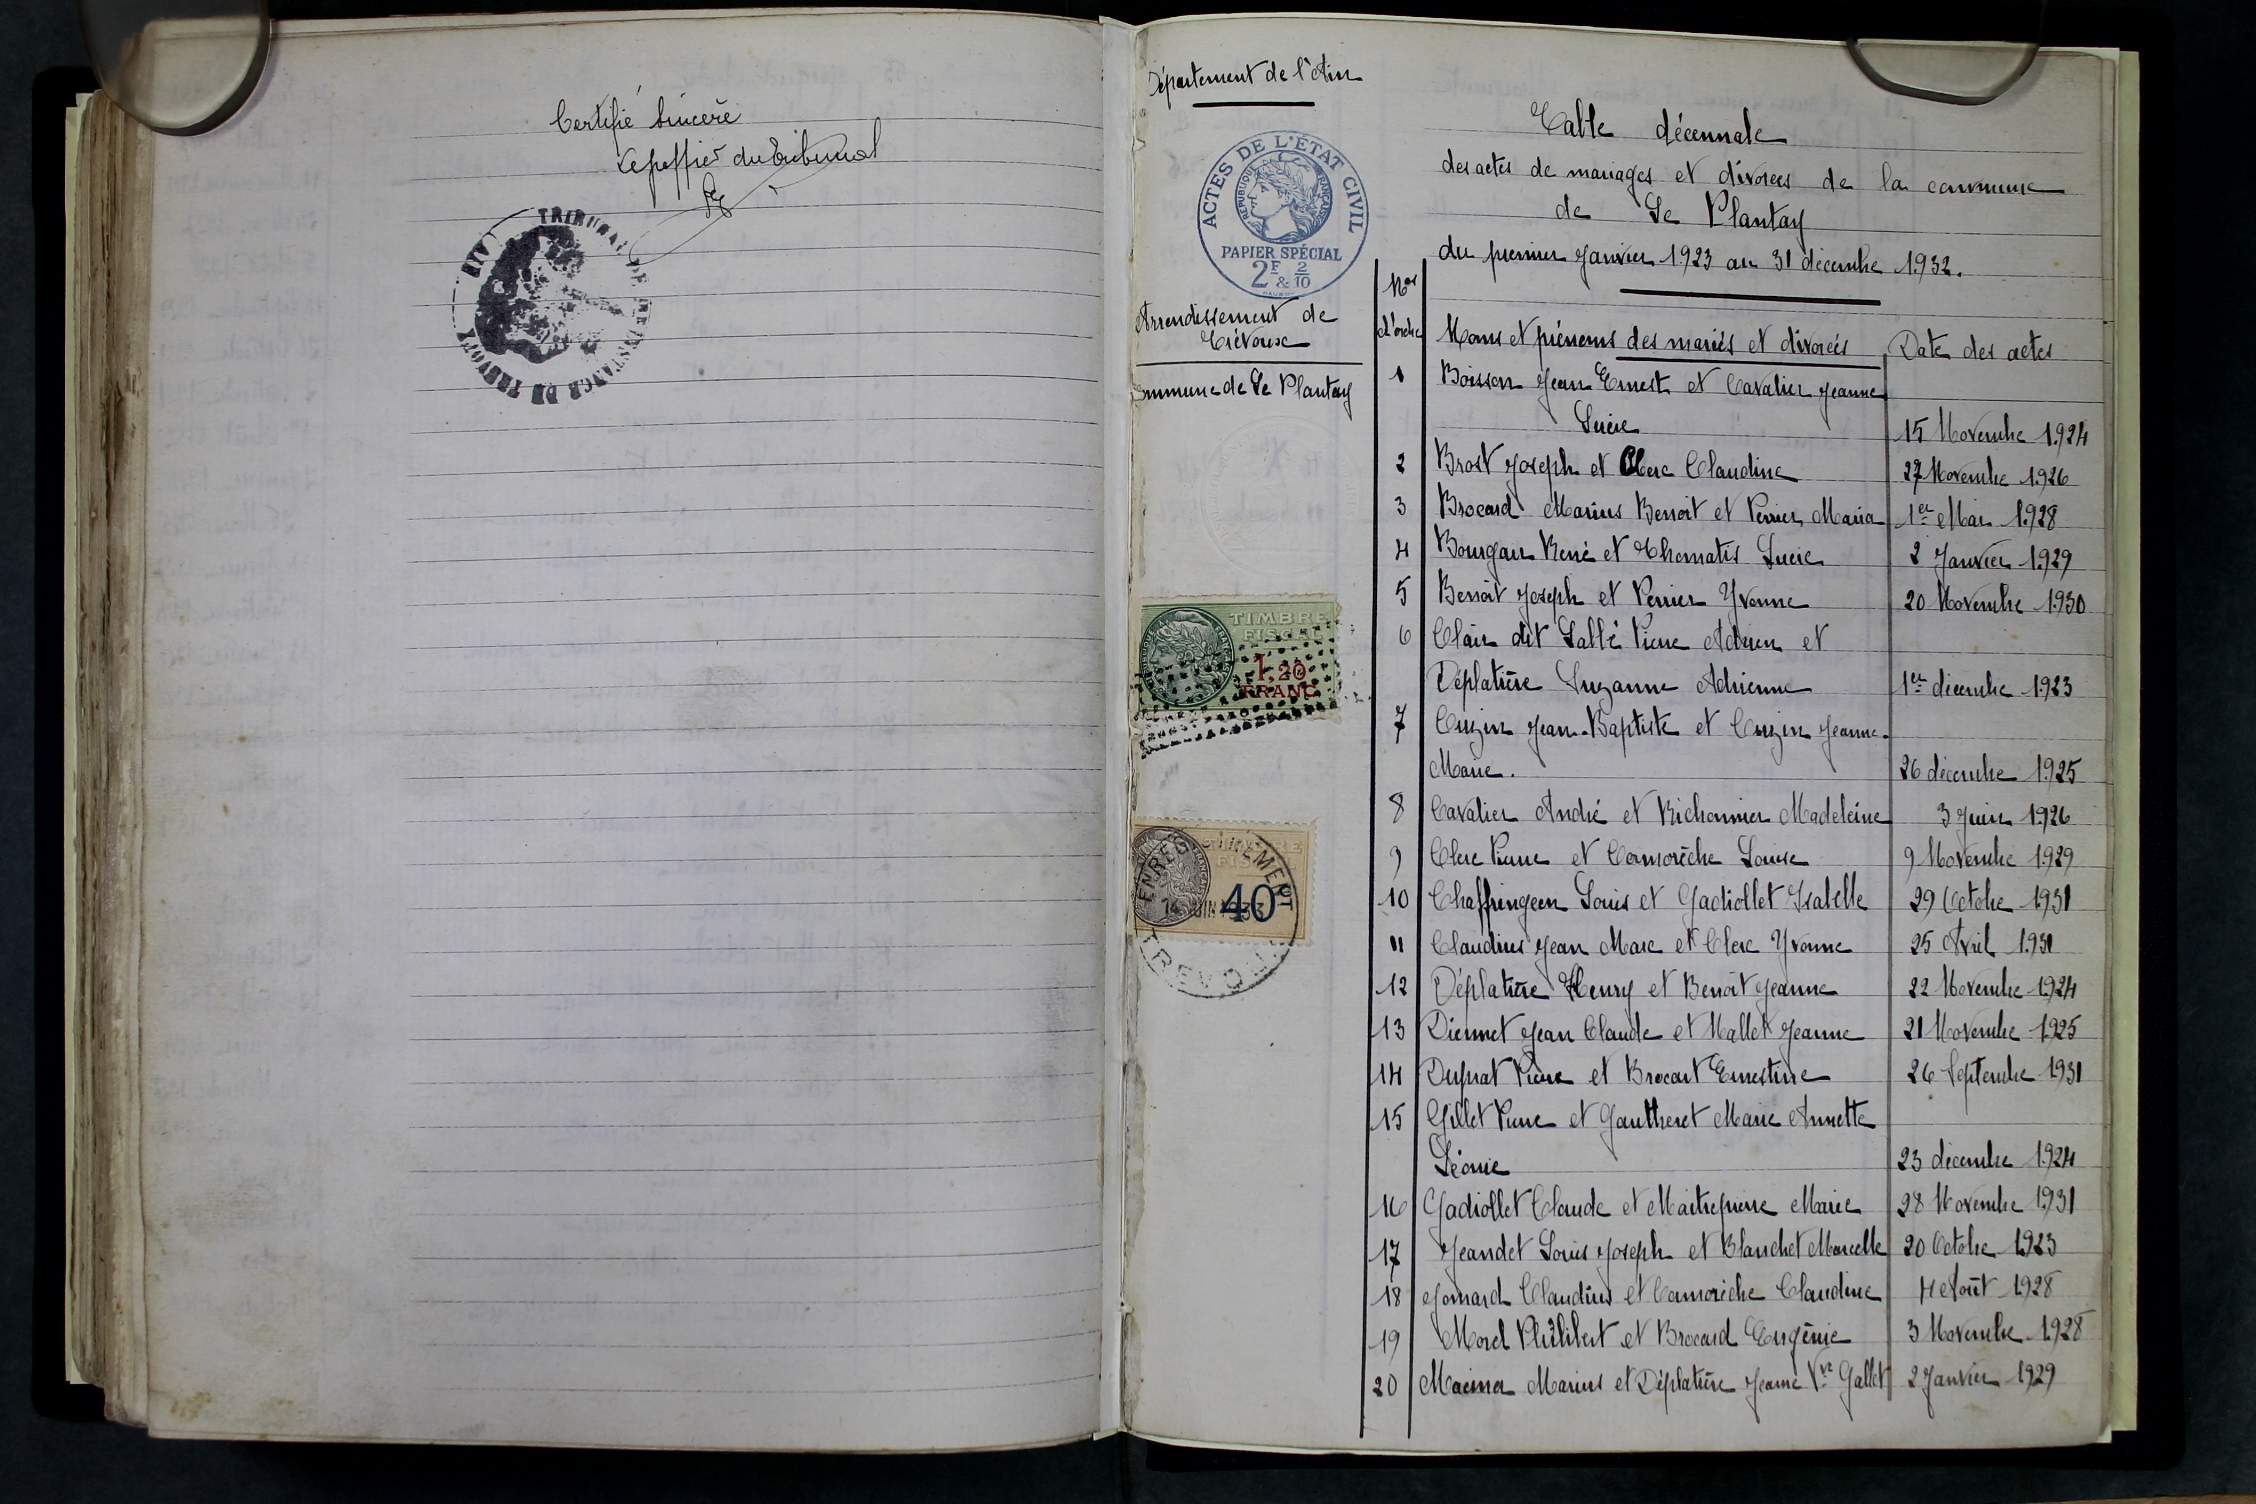 Certifié sincère
Le greffier du tribunal
TRIBUNAL DE 1ère INSTANCE DE TREVOUX
Département de l'Ain
ACTES DE L'ÉTAT CIVIL
RÉPUBLIQUE FRANÇAISE
PAPIER SPÉCIAL
2F & 2/10
Arrondissement de
Trévoux
Commune de Le Plantay
TIMBRE
FISCAL
1,20
FRANC
ENREGISTREMENT
40
TREVOUX
Table décennale
des actes de mariages et divorces de la commune
de Le Plantay
du premier Janvier 1923 au 31 décembre 1932.
Nos d'ordre Noms et prénoms des mariés et divorcés Date des actes
1 Boisson Jean Ernest et Cavalier Jeanne
Lucie 15 Novembre 1924
2 Brost Joseph et Clerc Claudine 27 Novembre 1926
3 Brocard Marius Benoit et Perrier Maria 1er Mai 1928
4 Bourgau René et Thomatis Lucie 2 Janvier 1929
5 Benoit Joseph et Perrier Yvonne 20 Novembre 1930
6 Clair dit Lallé Pierre Adrien et
Déplatière Suzanne Adrienne 1er décembre 1923
7 Cuzin Jean-Baptiste et Cuzin Jeanne-
Marie. 26 décembre 1925
8 Cavalier André et Richonnier Madeleine 3 Juin 1926
9 Clerc Pierre et Cormorèche Louise 9 Novembre 1929
10 Chaffringeon Louis et Gadiollet Isabelle 29 Octobre 1931
11 Claudius Jean Marc et Clerc Yvonne 25 Avril 1931
12 Déplatière Henry et Benoit Jeanne 22 Novembre 1924
13 Diennet Jean Claude et Mallet Jeanne 21 Novembre 1925
14 Duprat Pierre et Brocart Ernestine 26 Septembre 1931
15 Gillet Pierre et Gautheret Marie Annette
Léonie 23 décembre 1924
16 Gadiollet Claude et Maitrepierre Marie 28 Novembre 1931
17 Jeandet Louis Joseph et Blanchet Marcelle 20 Octobre 1923
18 Jomard Claudius et Cormorèche Claudine 4 Août 1928
19 Morel Philibert et Brocard Eugénie 3 Novembre 1928
20 Macina Marius et Déplatière Jeanne Vve Gallet 2 Janvier 1929